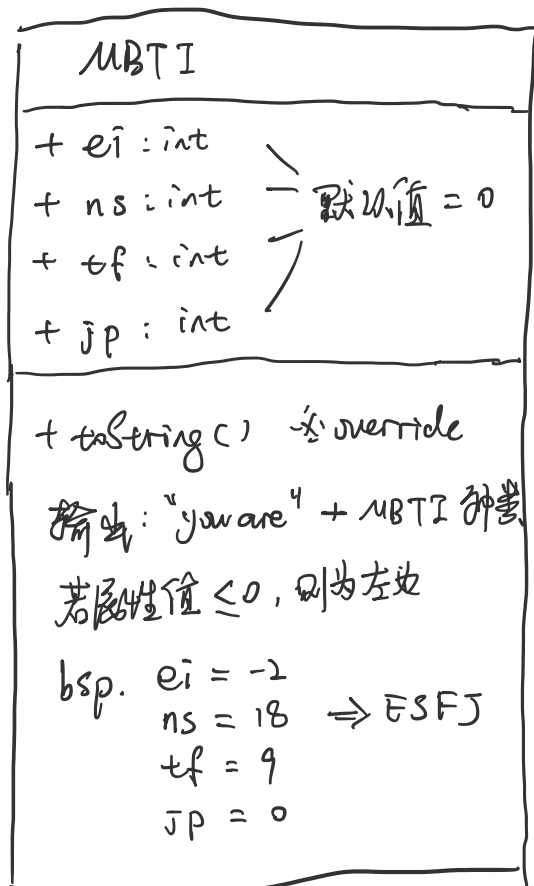 MBTI
+ ei : int
+ ns : int
+ tf : int
+ jp : int
默认值 = 0
+ toString() ※ override
输出 : "you are" + MBTI 种类
若属性值 ≤ 0, 则为左边
bsp. ei = -2
ns = 18 ⇒ ESFJ
tf = 9
JP = 0